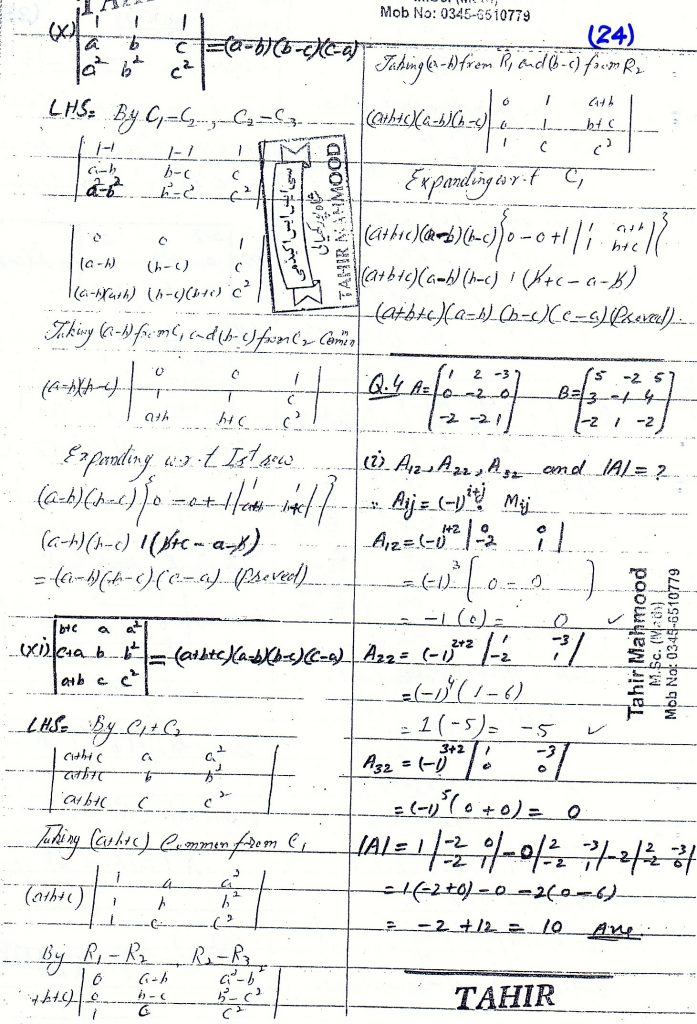 Mob No: 0345-6510779
(24)
(x) | 1 1 1 |
| a b c | = (a-b)(b-c)(c-a)
| a² b² c² |
LHS= By C₁-C₂, C₂-C₃
| 1-1 1-1 1 |
| a-b b-c c |
| a²-b² b²-c² c² |
| 0 0 1 |
| (a-b) (b-c) c |
| (a-b)(a+b) (b-c)(b+c) c² |
Taking (a-b) from C₁ and (b-c) from C₂ Common
(a-b)(b-c) | 0 0 1 |
| 1 1 c |
| a+b b+c c² |
Expanding w.r.t Ist row
(a-b)(b-c) {0 - 0 + 1 | 1 1 |
| a+b b+c | }
(a-b)(b-c) 1(b+c-a-b)
= (a-b)(b-c)(c-a) (Proved)
(xi) | b+c a a² |
| c+a b b² | = (a+b+c)(a-b)(b-c)(c-a)
| a+b c c² |
LHS= By C₁+C₂
| a+b+c a a² |
| a+b+c b b² |
| a+b+c c c² |
Taking (a+b+c) Common from C₁
(a+b+c) | 1 a a² |
| 1 b b² |
| 1 c c² |
By R₁-R₂ R₂-R₃
| 0 a-b a²-b² |
+b+c) | 0 b-c b²-c² |
| 1 c c² |
سی ایس ایس اکیڈمی
TAHIR MAHMOOD
Taking (a-b) from R₁ and (b-c) from R₂
(a+b+c)(a-b)(b-c) | 0 1 a+b |
| 0 1 b+c |
| 1 c c² |
Expanding w.r.t C₁
(a+b+c)(a-b)(b-c) {0-0+1 | 1 a+b |
| 1 b+c | }
(a+b+c)(a-b)(b-c) 1 (b+c-a-b)
(a+b+c)(a-b)(b-c)(c-a) (Proved).
Q.4 A= [ 1 2 -3 ] B= [ 5 -2 5 ]
[ 0 -2 0 ] [ 3 -1 4 ]
[ -2 -2 1 ] [ -2 1 -2 ]
(i) A₁₂, A₂₂, A₃₂ and |A| = ?
∵ Aij = (-1)^i+j Mij
A₁₂ = (-1)^1+2 | 0 0 |
| -2 1 |
= (-1)³ [ 0 - 0 ]
= -1(0) = 0 ✓
A₂₂ = (-1)^2+2 | 1 -3 |
| -2 1 |
= (-1)⁴ (1-6)
= 1(-5) = -5 ✓
A₃₂ = (-1)^3+2 | 1 -3 |
| 0 0 |
= (-1)⁵ (0+0) = 0
|A| = 1 | -2 0 | - 0 | 2 -3 | - 2 | 2 -3 |
| -2 1 | | -2 1 | | -2 0 |
= 1(-2+0) - 0 - 2(0-6)
= -2 + 12 = 10 Ans.
Tahir Mahmood
M.Sc. (Math)
Mob No: 0345-6510779
TAHIR